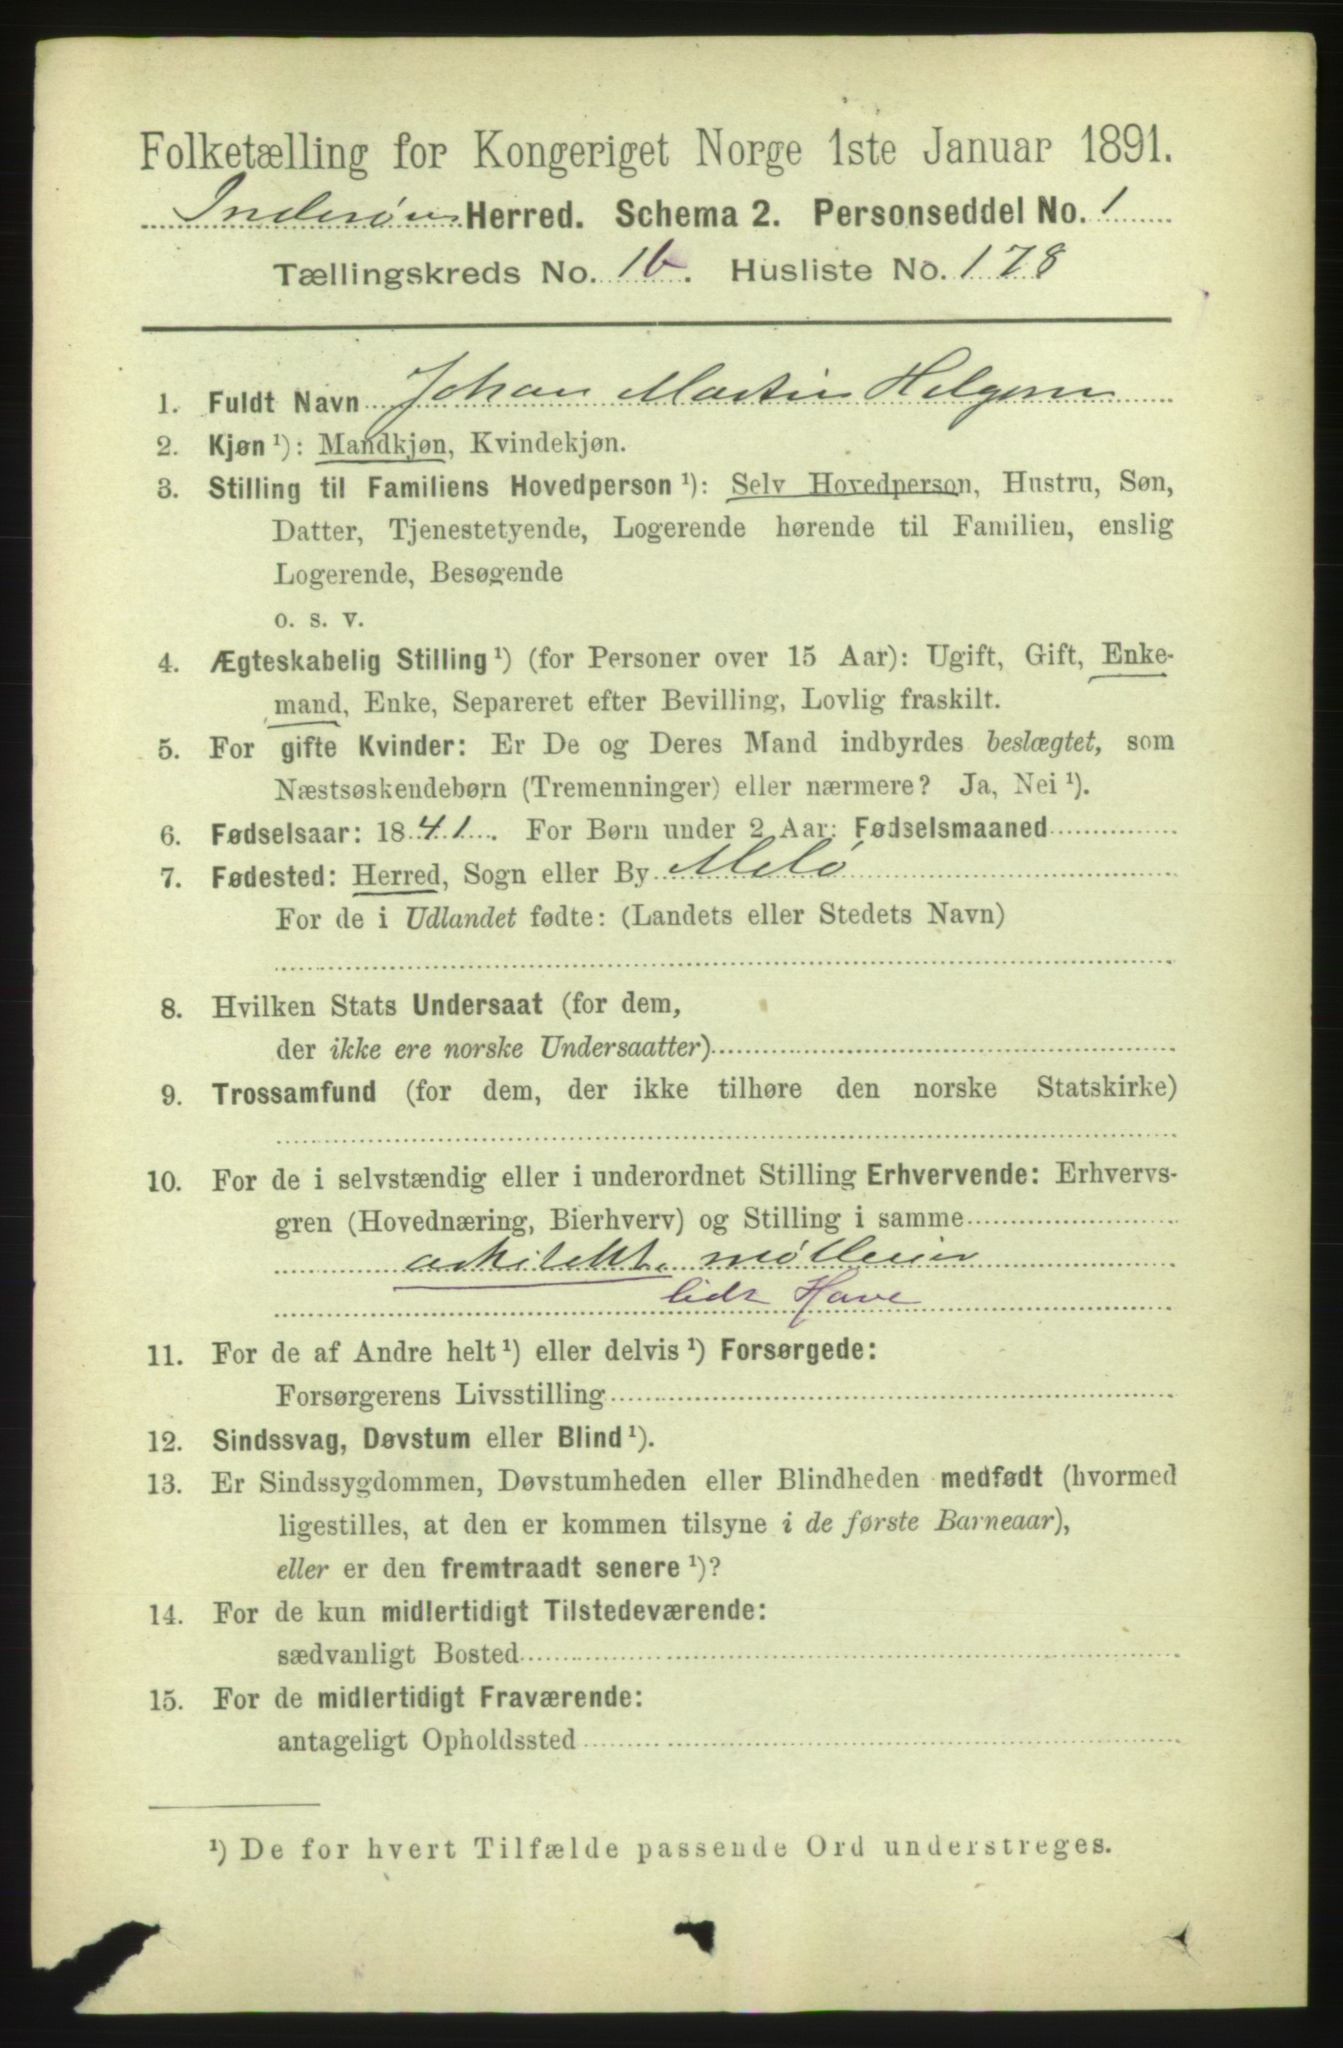 Folketælling for Kongeriget Norge 1ste Januar 1891.
Inderøen Herred. Schema 2. Personseddel No. 1
Tællingskreds No. 1b. Husliste No. 178
1. Fuldt Navn Johan Martin Helgesen
2. Kjøn ¹): Mandkjøn, Kvindekjøn.
3. Stilling til Familiens Hovedperson ¹): Selv Hovedperson, Hustru, Søn,
Datter, Tjenestetyende, Logerende hørende til Familien, enslig
Logerende, Besøgende
o. s. v.
4. Ægteskabelig Stilling ¹) (for Personer over 15 Aar): Ugift, Gift, Enke-
mand, Enke, Separeret efter Bevilling, Lovlig fraskilt.
5. For gifte Kvinder: Er De og Deres Mand indbyrdes beslægtet, som
Næstsøskendebørn (Tremenninger) eller nærmere? Ja, Nei ¹).
6. Fødselsaar: 1841. For Børn under 2 Aar: Fødselsmaaned
7. Fødested: Herred, Sogn eller By Melø
For de i Udlandet fødte: (Landets eller Stedets Navn)
8. Hvilken Stats Undersaat (for dem,
der ikke ere norske Undersaatter)
9. Trossamfund (for dem, der ikke tilhøre den norske Statskirke)
10. For de i selvstændig eller i underordnet Stilling Erhvervende: Erhvervs-
gren (Hovednæring, Bierhverv) og Stilling i samme
arkitekt. mølleeier
lidt Have
11. For de af Andre helt ¹) eller delvis ¹) Forsørgede:
Forsørgerens Livsstilling
12. Sindssvag, Døvstum eller Blind ¹).
13. Er Sindssygdommen, Døvstumheden eller Blindheden medfødt (hvormed
ligestilles, at den er kommen tilsyne i de første Barneaar),
eller er den fremtraadt senere ¹)?
14. For de kun midlertidigt Tilstedeværende:
sædvanligt Bosted
15. For de midlertidigt Fraværende:
antageligt Opholdssted
¹) De for hvert Tilfælde passende Ord understreges.